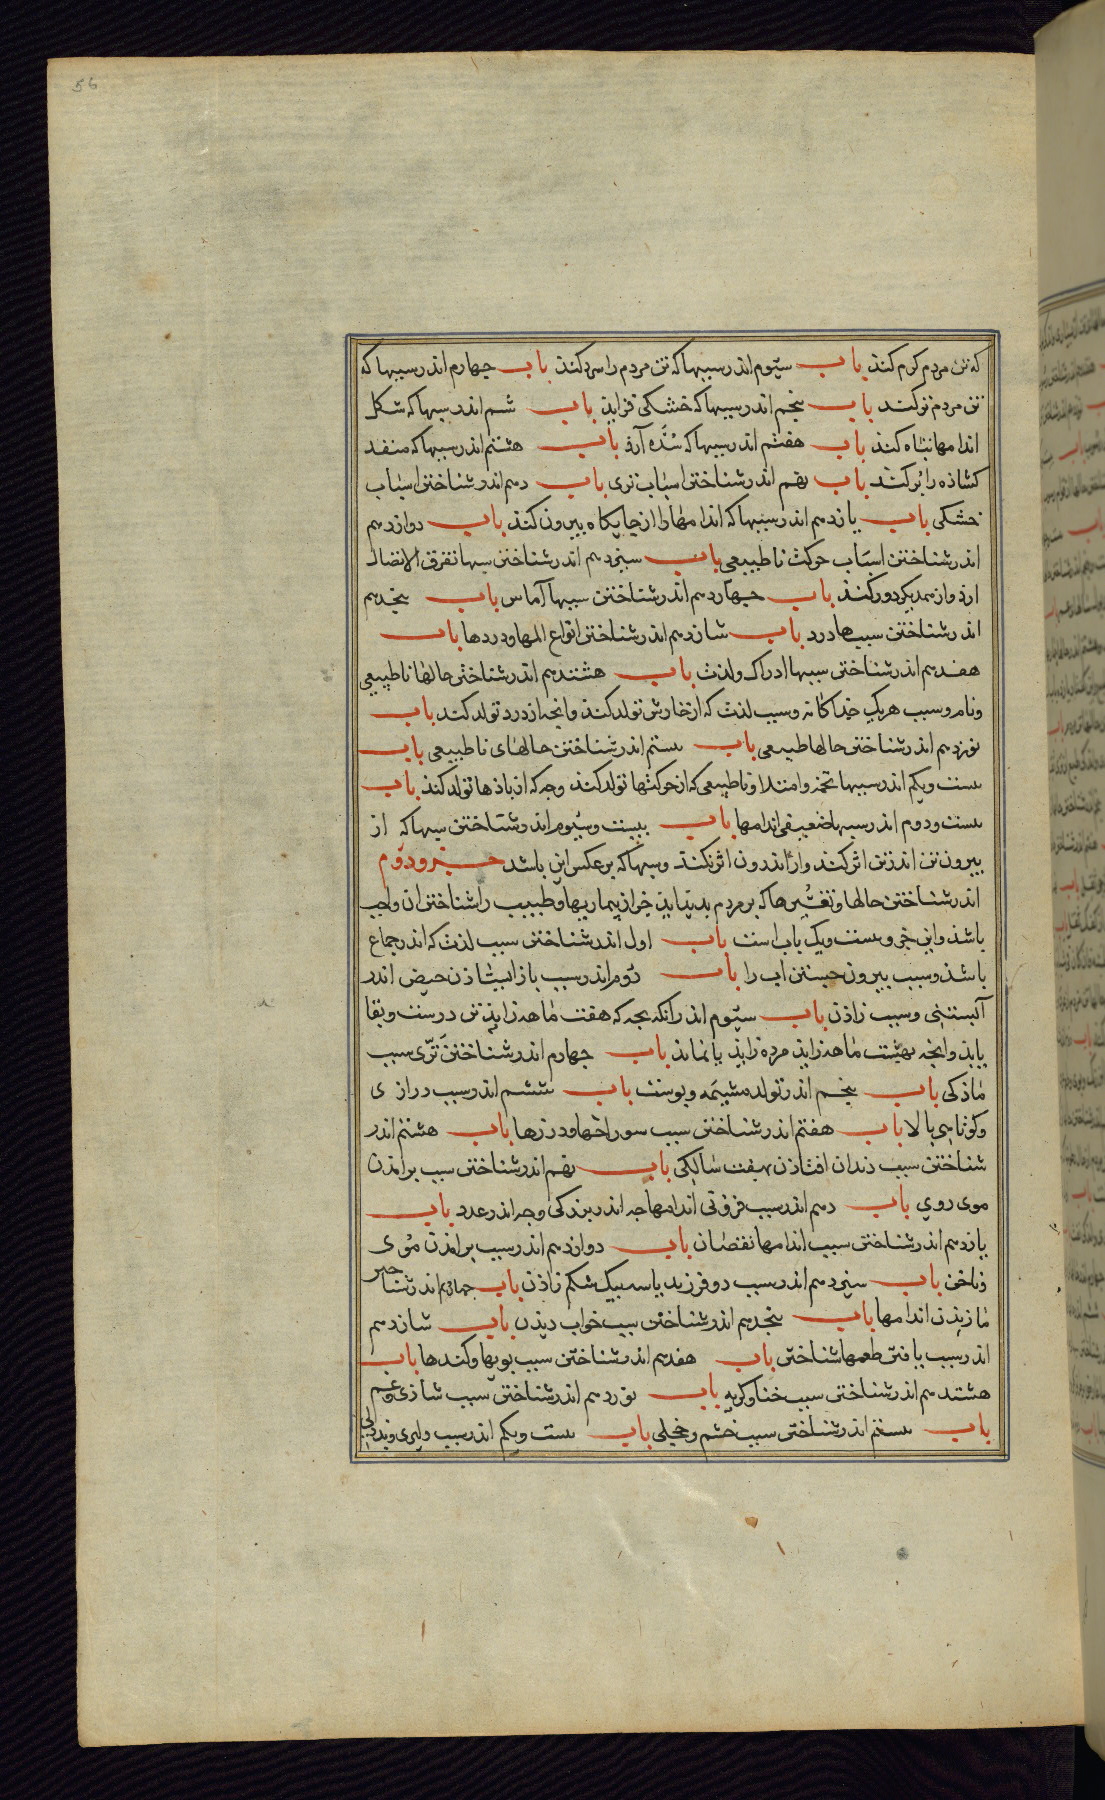 56
که تن مردم کرم کند باب سیوم اندر سببها که تن مردم را سرد کند باب چهارم اندر سببها که
تن مردم تر کند باب پنجم اندر سببها که خشکی فزاید باب ششم اندر سببها که شکل
اندامها تباه کند باب هفتم اندر سببها که سده آرد باب هشتم اندر سببها که منفد
کشاده را بر کند باب نهم اندر شناختن اسباب تری باب دهم اندر شناختن اسباب
خشکی باب یازدهم اندر سببها که اندامها را از جایکاه بیرون کند باب دوازدهم
اندر شناختن اسباب حرکت ناطبیعی باب سیزدهم اندر شناختن سببها تفرق الاتصال
ارد و از همدیکر دور کند باب چهاردهم اندر شناختن سببها آماس باب پنجدهم
اندر شناختن سببها درد باب شازدهم اندر شناختن انواع المها و دردها باب
هفدهم اندر شناختن سببها ادراک ولذت باب هشتدهم اندر شناختن حالها ناطبیعی
ونام وسبب هریک جداکانه وسبب لذت که از خارش تولد کند وانچه از درد تولد کند باب
نوزدهم اندر شناختن حالها طبیعی باب بیستم اندر شناختن حالهای ناطبیعی باب
بیست ویکم اندر سببها تخمه وامتلا وناطبیعی که از حرکتها تولد کند وچه که از بادها تولد کند باب
بیست ودوم اندر سببها ضعیفی اندامها باب بیست وسیوم اندر شناختن سببها که از
بیرون تن اندر تن اثر کند واز اندرون اثر نکند وسببها که بر عکس این باشد جزو دوم
اندر شناختن حالها وتغیرها که بر مردم بدید اید جز از بیماریها وطبیب را شناختن ان واجب
باشد واین جزو بیست ویک باب است باب اول اندر شناختن سبب لذت که اندر جماع
باشد وسبب بیرون جستن اب را باب دوم اندر سبب باز ایستادن حیض اندر
آبستنی وسبب زادن باب سیوم اندر انکه بچه که هفت ماهه زاید تن درست وبقا
یابد وانچه بهشت ماهه زاید مرده زاید یا نماند باب چهارم اندر شناختن نری سبب
مادکی باب پنجم اندر تولد مشیمه وپوست باب ششم اندر سبب درازی
وکوتاهی بالا باب هفتم اندر شناختن سبب سوراخها ودرزها باب هشتم اندر
شناختن سبب دندان افتادن بهفت سالکی باب نهم اندر شناختن سبب برامدن
موی روی باب دهم اندر سبب فزونی اندامها چه اندر بزرکی وچه اندر عدد باب
یازدهم اندر شناختن سبب اندامها نقصان باب دوازدهم اندر سبب برامدن موی
وناخن باب سیزدهم اندر سبب دو فرزند یا سه بیک شکم زادن باب چهاردهم اندر شنا
اندامها باب پنجدهم اندر شناختن سبب خواب دیدن باب شازدهم
اندر سبب یافتن طعمها شناختن باب هفدهم اندر شناختن سبب بویها وکندها باب
هشتدهم اندر شناختن سبب خنده وکریه باب نوزدهم اندر شناختن سبب شادی وغم
باب بیستم اندر شناختن سبب خشم وخجلی باب بیست ویکم اندر سبب دلیری وبددلی